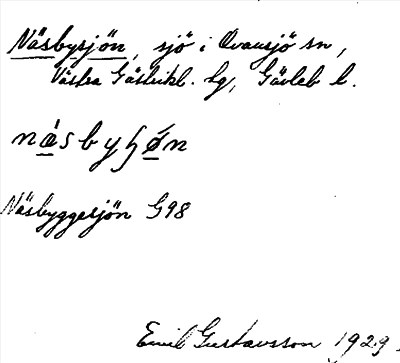 Näsbysjön, sjö i Ovansjö sn,
Västra Gästrikl. hg, Gävleb l.
nàsbyʃǿn
Näsbyggesjön G98
Emil Gustavsson 1929.